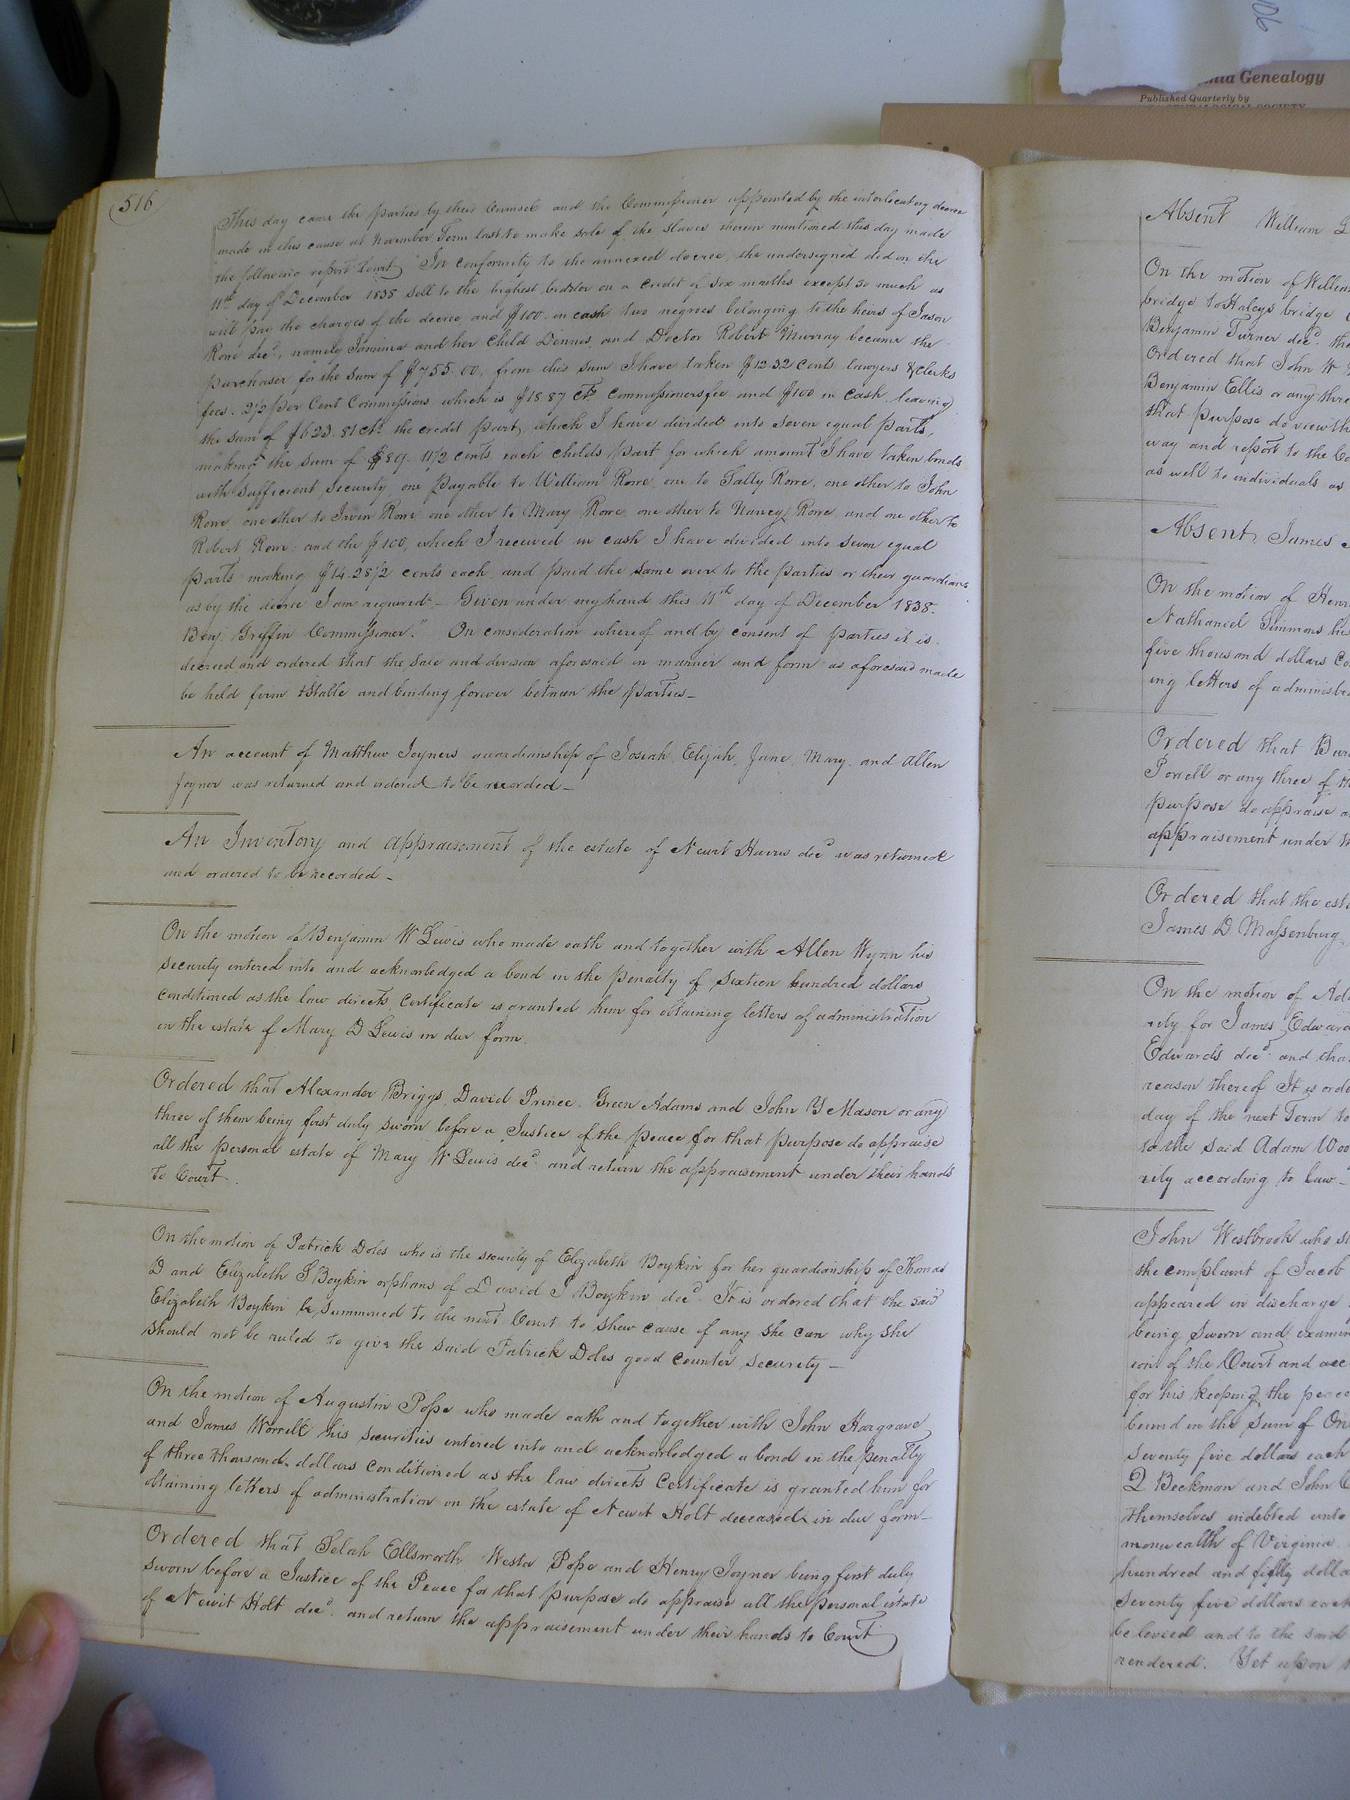 516
This day came the parties by their Counsel and the Commissioner appointed by the interlocutory decree
made in this cause at November Term last to make sale of the slaves therein mentioned this day made
the following report towit, "In conformity to the annexed decree, the undersigned did on the
11th day of December 1838 sell to the highest bidder on a credit of six months except so much as
will pay the charges of the decree and $100. in cash two negroes belonging to the heirs of Jason
Rowe decd, namely Jemima and her Child Dennis, and Doctor Robert Murray became the
purchaser for the sum of $755.00, from this sum I have taken $12.32 cents lawyers & clerks
fees. 2½ per Cent Commissions which is $18.87 cts Commissioners fee and $100 in Cash, leaving
the sum of $623.81 cts the credit part, which I have divided into seven equal parts,
making the sum of $89.11½ cents each childs part for which amount I have taken bonds
with sufficient security, one payable to William Rowe, one to Sally Rowe, one other to John
Rowe, one other to Irvin Rowe, one other to Mary Rowe, one other to Nancy Rowe, and one other to
Robert Rowe, and the $100, which I received in cash I have divided into seven equal
parts making $14.28½ cents each and paid the same over to the parties or their guardians
as by the decree I am required. Given under my hand this 11th day of December 1838.
Benj. Griffin Commissioner." On consideration whereof and by consent of parties it is
decreed and ordered that the sale and division aforesaid in manner and form as aforesaid made
be held firm & stable and binding forever between the parties—
An account of Matthew Joyners guardianship of Josiah, Elijah, Jane, Mary, and Allen
Joyner was returned and ordered to be recorded—
An Inventory and appraisement of the estate of Newit Harris decd was returned
and ordered to be recorded—
On the motion of Benjamin W Lewis who made oath and together with Allen Wynn his
security entered into and acknowledged a bond in the penalty of sixteen hundred dollars
conditioned as the law directs, Certificate is granted him for obtaining letters of administration
on the estate of Mary D Lewis in due form.
Ordered that Alexander Briggs, David Prince, Green Adams and John Y Mason or any
three of them being first duly sworn before a Justice of the peace for that purpose do appraise
all the personal estate of Mary W Lewis decd. and return the appraisement under their hands
to Court.
On the motion of Patrick Doles who is the security of Elizabeth Boykin for her guardianship of Thomas
D and Elizabeth S Boykin orphans of David S Boykin decd. It is ordered that the said
Elizabeth Boykin be summoned to the next Court to shew cause if any she can why she
should not be ruled to give the said Patrick Doles good counter security—
On the motion of Augustin Pope who made oath and together with John Hargrave
and James Worrell his securities entered into and acknowledged a bond in the penalty
of three thousand dollars conditioned as the law directs Certificate is granted him for
obtaining letters of administration on the estate of Newit Holt deceased in due form—
Ordered that Selah Ellsworth Pope and Henry Joyner being first duly
sworn before a Justice of the Peace for that purpose do appraise all the personal estate
of Newit Holt decd. and return the appraisement under their hands to Court
Absent William
On the motion of
bridge to Haleys bridge
Benjamin Turner decd.
Ordered that John W
Benjamin Ellis or any three
that purpose do view the
way and report to the
as well to individuals as
Absent, James
On the motion of
Nathaniel Simmons his
five thousand dollars
ing letters of
Ordered that
Powell or any three of
purpose do appraise
appraisement under
Ordered that the
James D Massenburg
On the motion of
rity for James
Edwards decd. and that
reason thereof It is
day of the next Term to
to the said Adam
rity according to law—
John Westbrook who
the complaint of Jacob
appeared in discharge
being sworn and
ion of the Court and
for his keeping the peace
bound in the sum of
Seventy five dollars each
Q Beckman and John
themselves indebted unto
monwealth of Virginia
hundred and fifty
Seventy five dollars each
be levied and to the said
rendered. Yet upon
06
Genealogy
Published Quarterly by